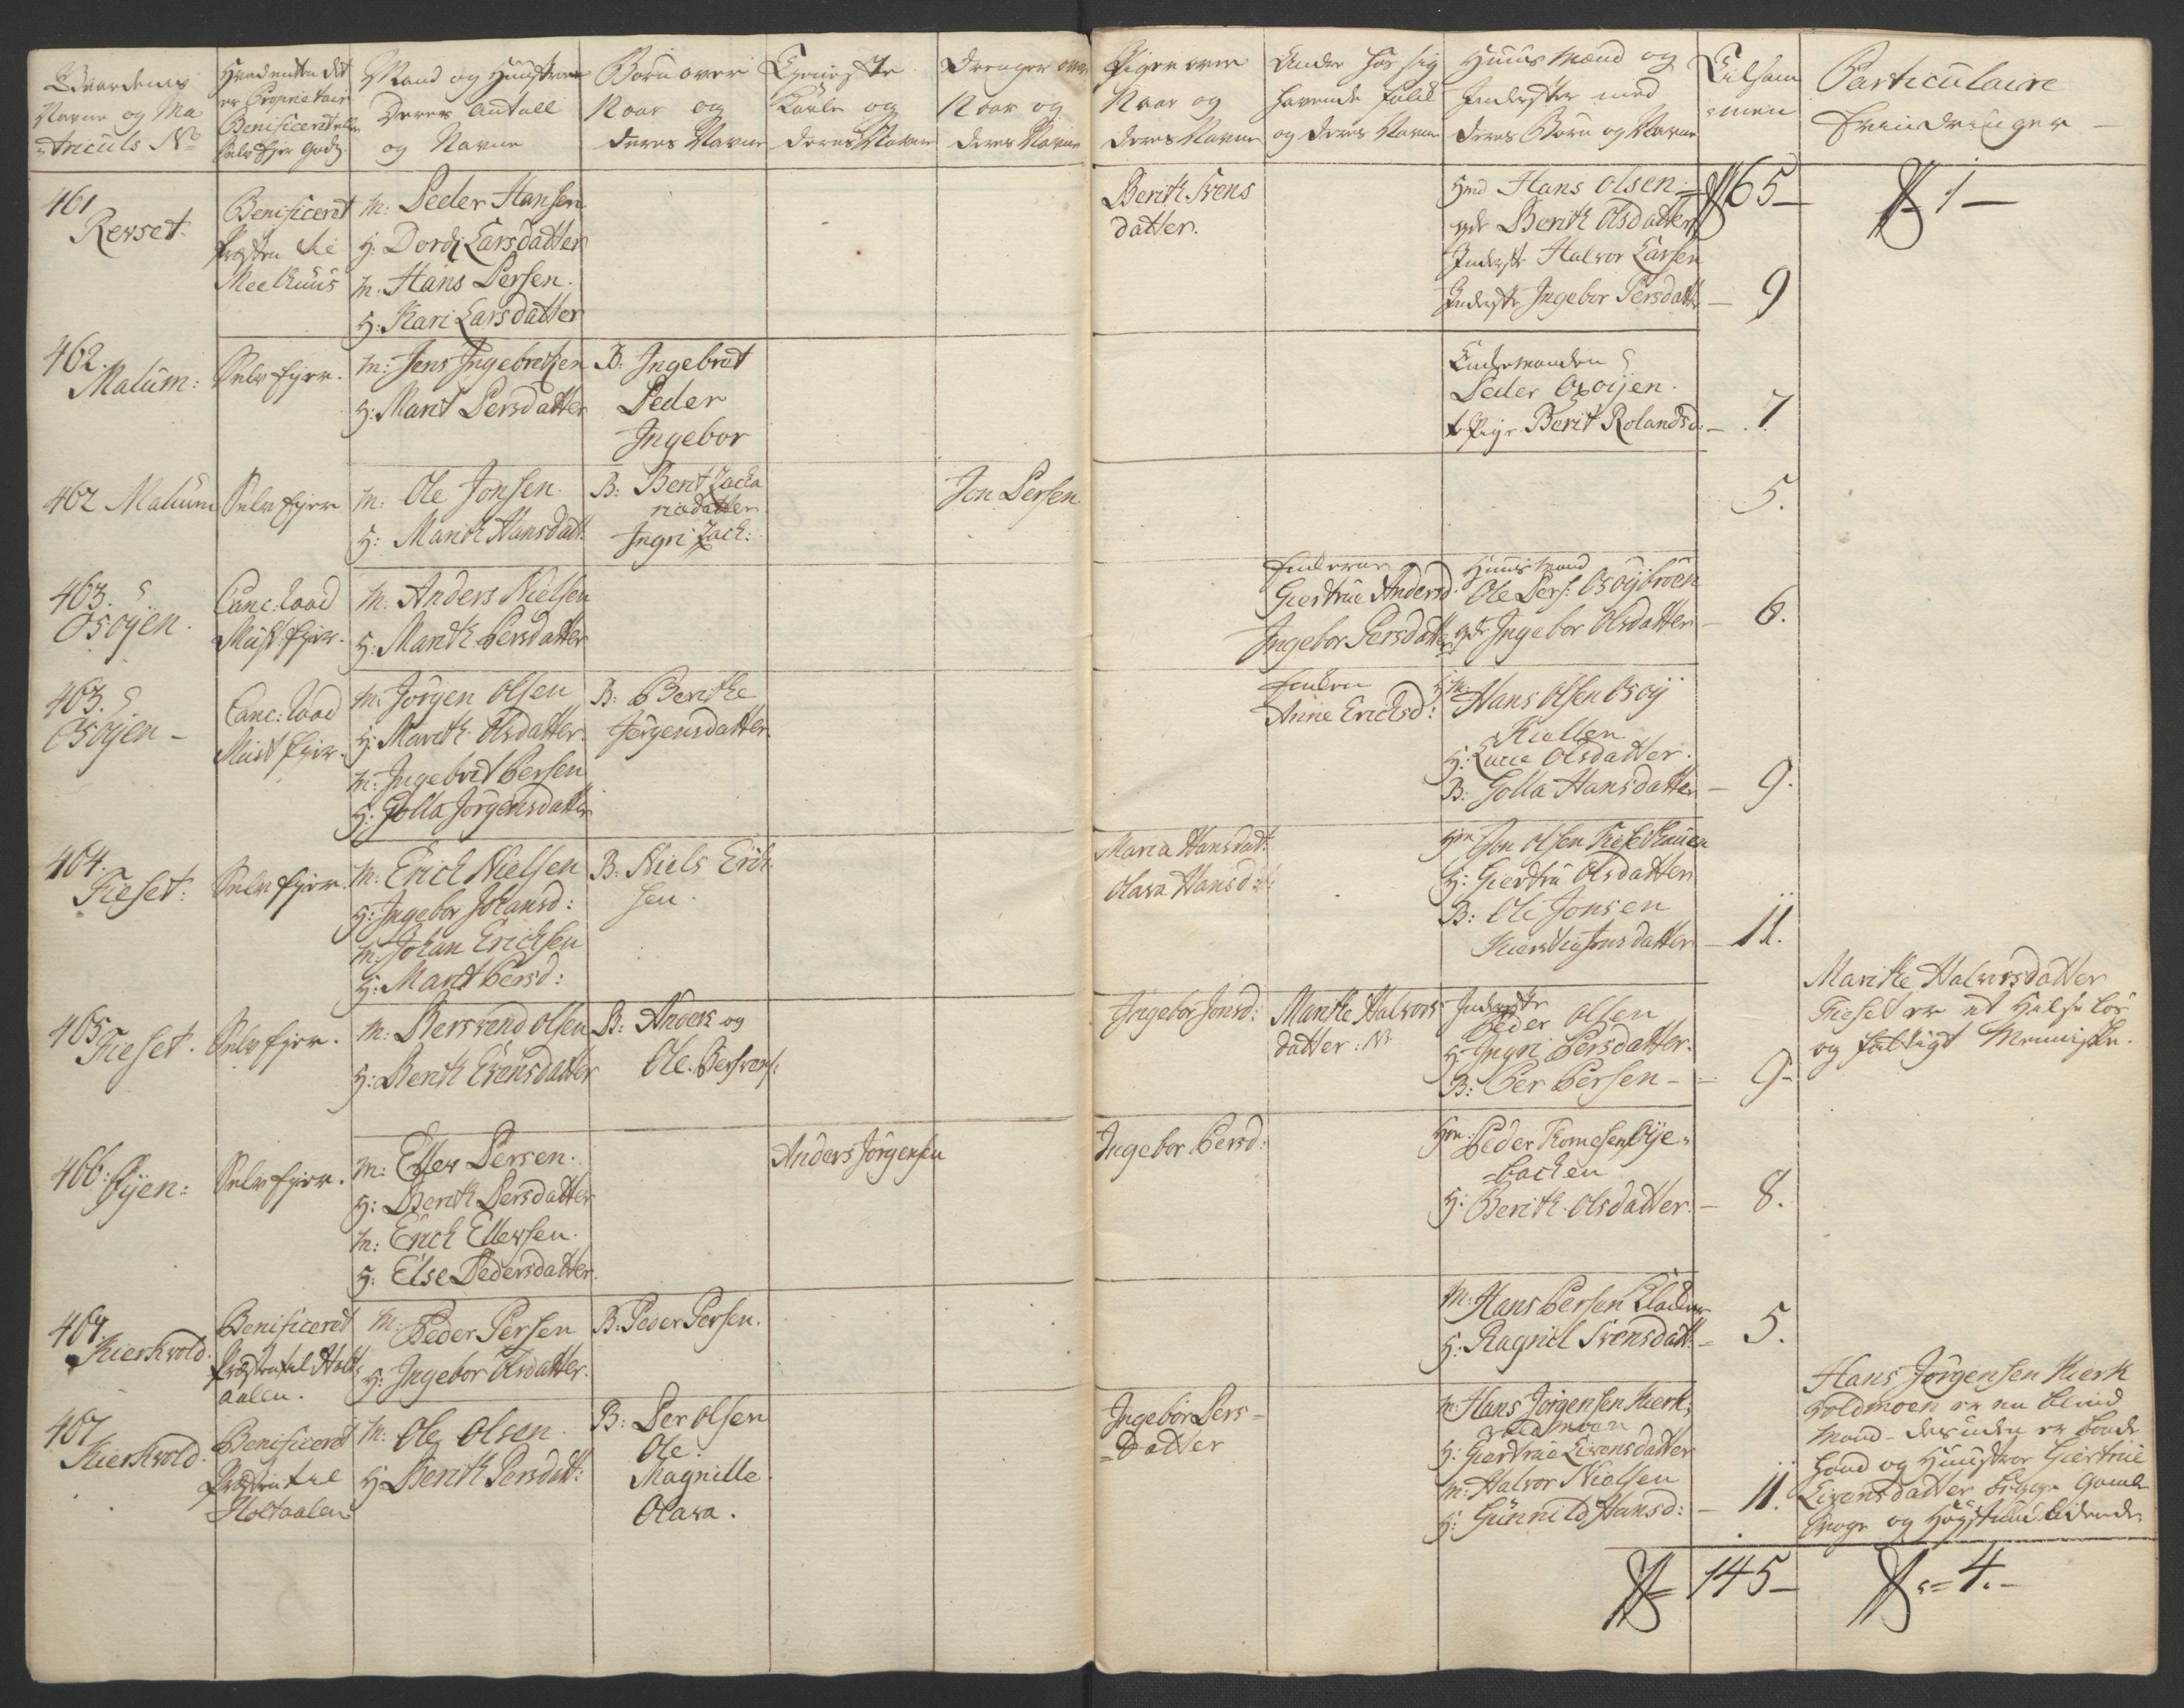 Gaardenes
Navne og Ma
=triculs No
Hvad enten det
er Proprietair
Benificeret eller
Selv Ejer Gods
Mand og Huustrue
Deres Antall
og Navne
Børn over
12 aar og
deres Navne
Tieneste
Karle og
deres Navne
Drenger over
12 aar og
deres Navne
Piger over
12 aar og
deres Navne
Andre hos sig
havende folk
og deres Navne
Huus Mænd og
Inderster med
deres Børn og Navne
Tilsam
=men
Particulaire
Erindringer
461
Revset.
Benificeret
Præsten til
Meelhuus
M: Peder Hansen
H: Dordi Larsdatter
M. Hans Persen.
H: Kari Larsdatter
Berith Svens
datter.
Hmd Hans Olsen
Berith Olsdatter
Inderste Halvor Larsen
Inderste Ingebor Persdatter
65
9
1
462.
Malum:
Selv Ejer.
M: Jens Ingebretzen
H: Marit Persdatter
B: Ingebret
Peder
Ingebor
Peder Osøyen.
Pige Berit Rolandsd:
7
462 Malum
Selv Ejer
M: Ole Jonsen.
H: Marith Hansdatt:
B: Berit Zacka
riadatter
Ingri Zack:
Jon Persen
5.
463.
Osøyen.
Canc: Raad
Must Ejer.
M. Anders Nielsen
H: Marith Persdatter
Giertrue Andersd.
Ingebor Persdatter
Huusmand
Ole Pers: Osøybroen
Ingebor Olsdatter
6.
463.
Osøyen
Canc: Raad
Must Ejer.
M: Jørgen Olsen
H: Marith Olsdatter.
M: Ingebrit Persen
H: Golla Jørgensdatter
B: Berithe
Jørgensdatter
Anne Ericksd:
Hm Hans Olsen Osøy
H: Lucie Olsdatter.
B: Golla Hansdatter
9.
464.
Fieset:
Selv Ejer.
M. Erick Nielsen
H: Ingebor Johansd:
M: Johan Ericksen
H: Marit Persd:
B: Niels Erick
sen.
Maria Hansdat:
Olava Hansd:
Hm Jon Olsen Fieset
H: Giertru Olsdatter
B: Ole Jonsen
Kiersti Jonsdatter
11.
465
Fieset.
Selv Ejer.
M: Bersvend Olsen
H: Berith Evensdatter
B: Anders og
Ole. Bersvens:
Ingebor Jonsd:
Marithe Halvors
datter: N
Inderste
Peder Olsen
H: Ingri Persdatter.
B: Per Persen
9
Marithe Halvorsdatter
Fieset er et Helseløs
og fattigt Menniske.
466:
Øyen:
Selv Ejer.
M: Eller Persen.
H: Berith Persdatter
M: Erick Ellersen.
H: Else Pedersdatter.
Anders Jørgensen
Ingebor Persd:
Hm: Peder Tomesen Øye=
=backen
H: Berith Olsdatter.
8.
467.
Kierkvold.
Benificeret
Præsten til Holt
aalen.
M: Peder Persen
H: Ingebor Olsdatter.
B: Peder Persen.
M: Hans Persen
H: Ragnil Svensdatt:
5.
467
Kierkvold.
Benificeret
Præsten til
Holtaalen
M: Ole Olsen.
H: Berith Persdatt:
B: Per Olsen
Ole.
Magnille.
Olava.
Ingebor Pers=
=Datter
M. Hans Jørgensen Kierk,
voldmoen
H: Giertrue Eivensdatter
M: Halvor Nielsen
H: Gunnild Hansd:
11.
Hans Jørgensen Kierk
voldmoen er en blind
Mand - desuden er baade
hand og Huustroe Giertrue
Eivensdatter begge Gamle
145
4.